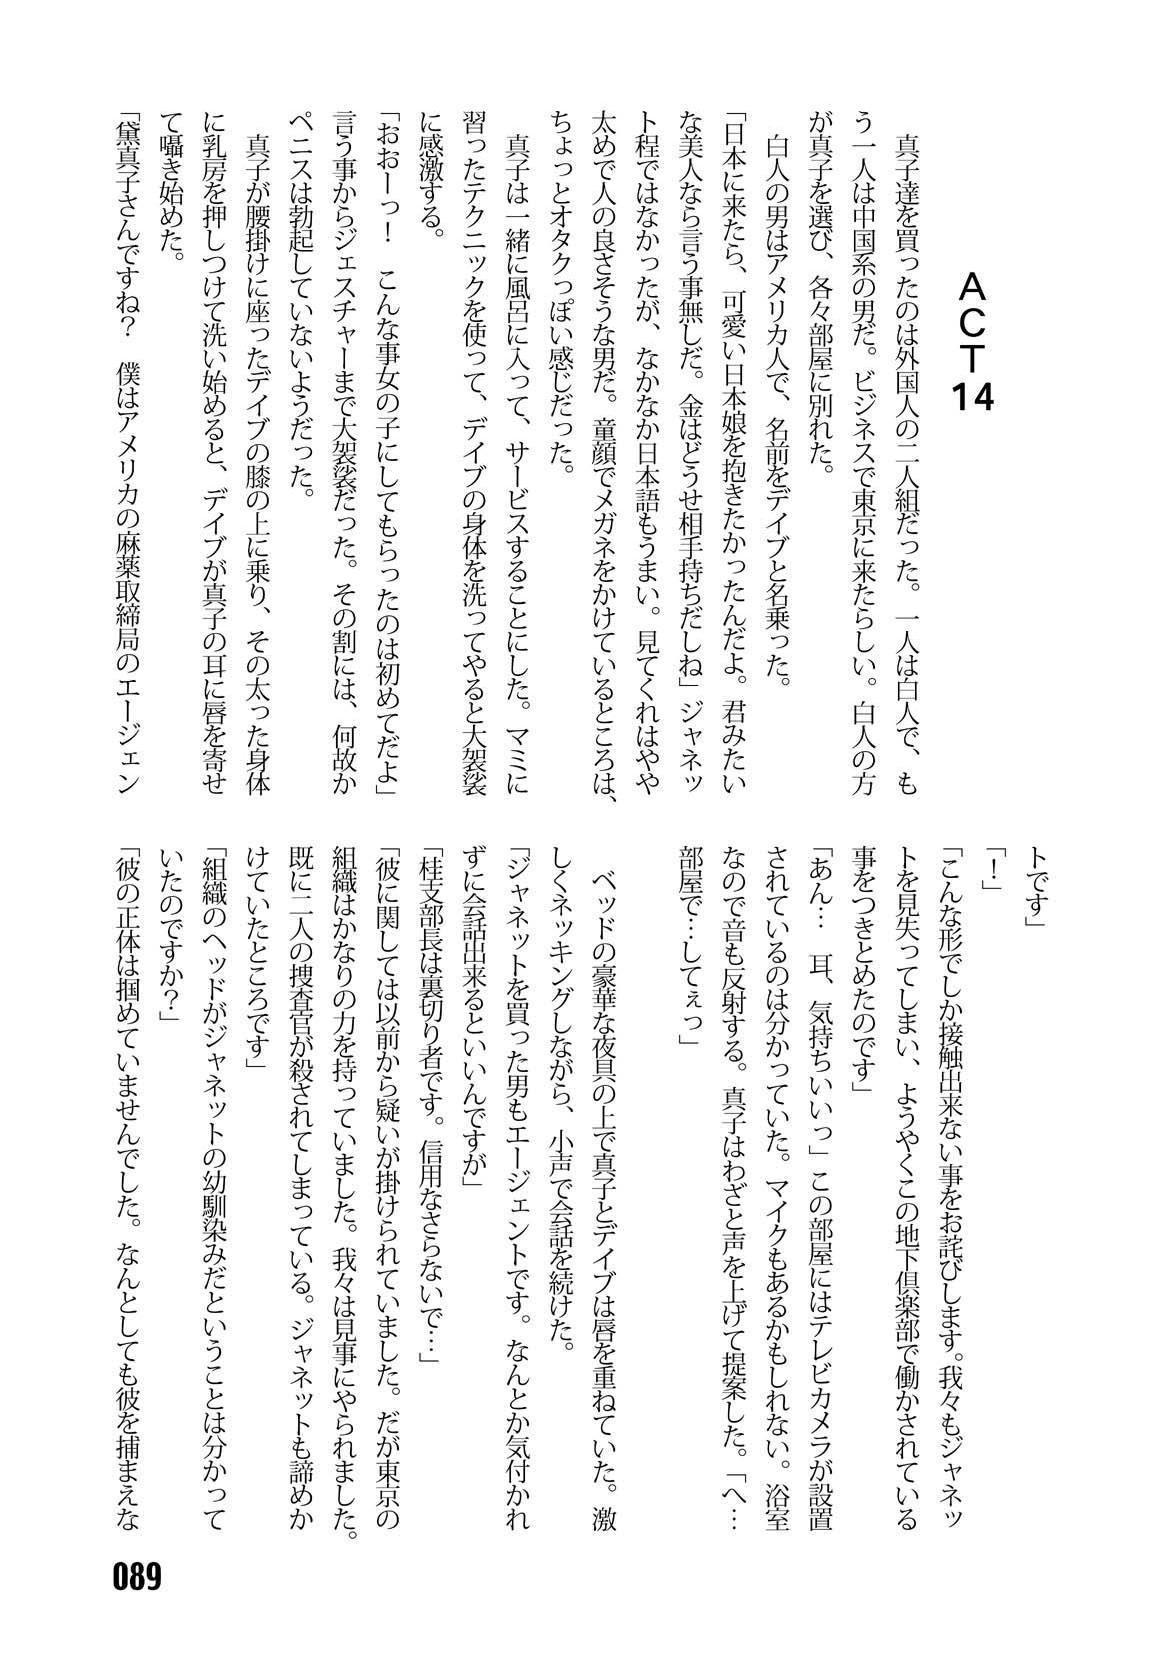 ACT14
真子達を買ったのは外国人の二人組だった。一人は白人で、も
う一人は中国系の男だ。ビジネスで東京に来たらしい。白人の方
が真子を選び、各々部屋に別れた。
白人の男はアメリカ人で、名前をデイブと名乗った。
「日本に来たら、可愛い日本娘を抱きたかったんだよ。君みたい
な美人なら言う事無しだ。金はどうせ相手持ちだしね」ジャネッ
ト程ではなかったが、なかなか日本語もうまい。見てくれはやや
太めで人の良さそうな男だ。童顔でメガネをかけているところは、
ちょっとオタクっぽい感じだった。
真子は一緒に風呂に入って、サービスすることにした。マミに
習ったテクニックを使って、デイブの身体を洗ってやると大袈裟
に感激する。
「おおーっ！　こんな事女の子にしてもらったのは初めてだよ」
言う事からジェスチャーまで大袈裟だった。その割には、何故か
ペニスは勃起していないようだった。
真子が腰掛けに座ったデイブの膝の上に乗り、その太った身体
に乳房を押しつけて洗い始めると、デイブが真子の耳に唇を寄せ
て囁き始めた。
「黛真子さんですね？　僕はアメリカの麻薬取締局のエージェン
トです」
「！」
「こんな形でしか接触出来ない事をお詫びします。我々もジャネッ
トを見失ってしまい、ようやくこの地下倶楽部で働かされている
事をつきとめたのです」
「あん…　耳、気持ちいいっ」この部屋にはテレビカメラが設置
されているのは分かっていた。マイクもあるかもしれない。浴室
なので音も反射する。真子はわざと声を上げて提案した。「へ…
部屋で…してぇっ」
ベッドの豪華な夜具の上で真子とデイブは唇を重ねていた。激
しくネッキングしながら、小声で会話を続けた。
「ジャネットを買った男もエージェントです。なんとか気付かれ
ずに会話出来るといいんですが」
「桂支部長は裏切り者です。信用なさらないで…」
「彼に関しては以前から疑いが掛けられていました。だが東京の
組織はかなりの力を持っていました。我々は見事にやられました。
既に二人の捜査官が殺されてしまっている。ジャネットも諦めか
けていたところです」
「組織のヘッドがジャネットの幼馴染みだということは分かって
いたのですか？」
「彼の正体は掴めていませんでした。なんとしても彼を捕まえな
089